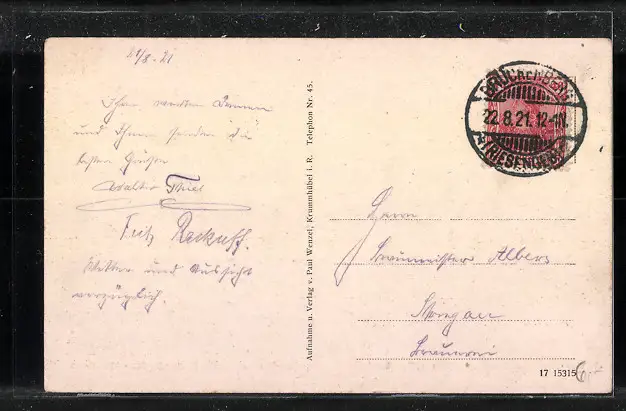 21/8. 21
Ihrer werten Damen
und Ihnen senden die
besten Grüße
Walter Thiel
Fritz
Wetter und Aussicht
vorzüglich.
Aufnahme u. Verlag v. Paul Wenzel, Krummhübel i. R. Telephon Nr. 45.
22.8.21. 12-1N.
(RIESENGEB.)
Herrn
Braumeister Albers
Brauerei
17 15315